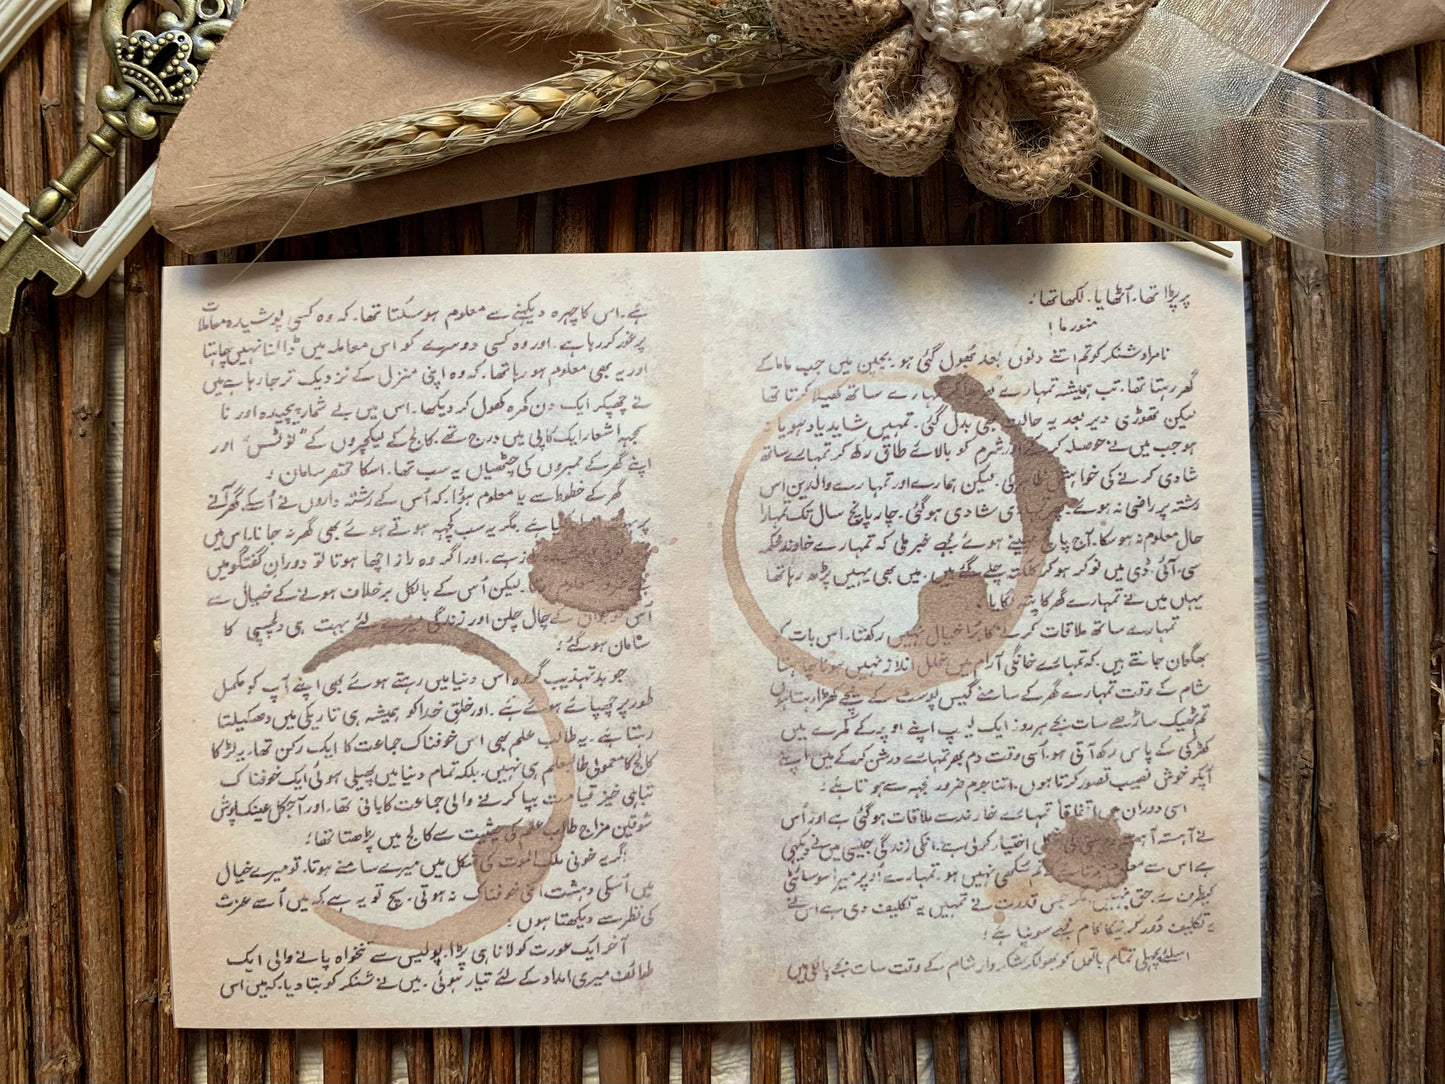 پر پڑا تھا۔ اٹھایا۔ لکھا تھا؛
منورما!
نامراد شنکر کو تم اتنے دنوں بعد بھول گئی ہو۔ بچپن میں جب ماما کے
گھر رہتا تھا۔ تب ہمیشہ تمہارے ساتھ کھیلا کرتا تھا
لیکن تھوڑی دیر بعد یہ حالت بھی بدل گئی۔ تمہیں شاید یاد ہو یا نہ
ہو جب میں نے حوصلہ کر کے اور شرم کو بالائے طاق رکھ کر تمہارے ساتھ
شادی کرنے کی خواہش ظاہر کی۔ لیکن ہمارے اور تمہارے والدین اس
رشتہ پر راضی نہ ہوئے شادی ہو گئی۔ چار پانچ سال تک تمہارا
حال معلوم نہ ہو سکا۔ آج پانچ مہینے ہوئے مجھے خبر ملی کہ تمہارے خاوند
سی۔ آئی۔ ڈی میں نوکر ہو کر کلکتہ چلے گئے ہیں۔ میں بھی یہیں پڑھ رہا تھا
یہاں میں نے تمہارے گھر کا پتہ لگایا۔
تمہارے ساتھ ملاقات کرنے کا برا خیال نہیں رکھتا۔ اس بات کو
بھگوان جانتے ہیں۔ کہ تمہارے خانگی آرام میں خلل انداز نہیں ہونا چاہتا
شام کے وقت تمہارے گھر کے سامنے گیس پوسٹ کے نیچے کھڑا رہتا ہوں
تم ٹھیک ساڑھے سات بجے ہر روز ایک لیمپ اپنے اوپر کے کمرے میں
کھڑکی کے پاس رکھ آتی ہو۔ اسی وقت دم بھر تمہارے درشن کر کے میں اپنے
آپکو خوش نصیب تصور کرتا ہوں۔ اتنا جرم ضرور مجھ سے ہوتا ہے؛
اسی دوران میں اتفاقاً تمہارے خاوند سے ملاقات ہو گئی ہے اور اُس
نے آہستہ آہستہ اختیار کر لی ہے۔ انکی زندگی جیسی میں نے دیکھی
ہے اس سے سکھی نہیں ہو۔ تمہارے اوپر میرا سوسائٹی
کیطرف سے حق نہیں۔ قدرت نے تمہیں یہ تکلیف دی ہے اس نے
یہ تکلیف دور کرنیکا کام مجھے سونپا ہے؛
اسلئے پچھلی تمام باتوں کو بھولکر شکروار شام کے وقت سات بجے بالکل میں
ہے۔ اس کا چہرہ دیکھنے سے معلوم ہو سکتا تھا۔ کہ وہ کسی پوشیدہ معاملات
پر غور کر رہا ہے۔ اور وہ کسی دوسرے کو اس معاملہ میں ڈالنا نہیں چاہتا
اور یہ بھی معلوم ہو رہا تھا۔ کہ وہ اپنی منزل کے نزدیک تر جا رہا ہے میں
نے چھپکر ایک دن کمرہ کھول کر دیکھا۔ اس میں بے شمار پیچیدہ اور نا
سمجھہ اشعار ایک کاپی میں درج تھے۔ کالج کے لیکچروں کے "نوٹس" اور
اپنے گھر کے ممبروں کی چٹھیاں یہ سب تھا۔ اسکا مختصر سامان؛
گھر کے خطوط سے یا معلوم ہوا۔ کہ اُس کے رشتہ داروں نے اُسکے گھر آنے
پر ہے۔ مگر یہ سب کچھ ہوتے ہوئے بھی گھر نہ جانا۔ اس میں
راز ہے۔ اور اگر وہ راز اچھا ہوتا تو دوران گفتگو میں
لیکن اُس کے بالکل برخلاف ہونے کے خیال سے
اُس نوجوان کے چال چلن اور زندگی میرے لئے بہت ہی دلچسپی کا
سامان ہو گئے؛
جو بد تہذیب گروہ اس دنیا میں رہتے ہوئے بھی اپنے آپ کو مکمل
طور پر چھپائے ہوئے ہے۔ اور خلق خدا کو ہمیشہ ہی تاریکی میں دھکیلتا
رہتا ہے۔ یہ طالب علم بھی اس خوفناک جماعت کا ایک رکن تھا۔ یہ لڑکا
کالج کا معمولی طالبعلم ہی نہیں۔ بلکہ تمام دنیا میں پھیلی ہوئی ایک خوفناک
تباہی خیز قیامت بپا کرنے والی جماعت کا بانی تھا۔ اور آجکل عینک پوش
شوقین مزاج طالب علم کی حیثیت سے کالج میں پڑھتا تھا؛
اگر یہ خونی ملک الموت کی شکل میں میرے سامنے ہوتا۔ تو میرے خیال
میں اُسکی دہشت اتنی خوفناک نہ ہوتی۔ سچ تو یہ ہے کہ میں اُسے عزت
کی نظر سے دیکھتا ہوں؛
آخر ایک عورت کو لانا ہی پڑا۔ پولیس سے تنخواہ پانے والی ایک
طوائف میری امداد کے لئے تیار ہوئی۔ میں نے شنکر کو بتا دیا۔ کہ میں اس